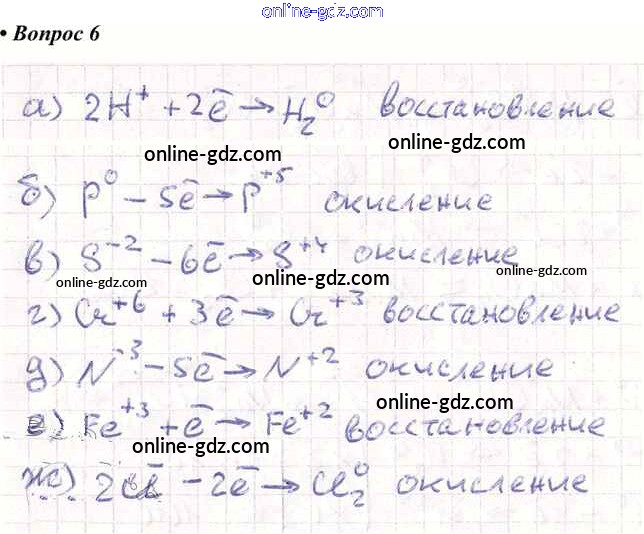 online-gdz.com
• Вопрос 6
а) 2H⁺ + 2ē → H₂⁰ восстановление
online-gdz.com online-gdz.com
б) P⁰ – 5ē → P⁺⁵ окисление
в) S⁻² – 6ē → S⁺⁴ окисление
online-gdz.com online-gdz.com online-gdz.com
г) Cr⁺⁶ + 3ē → Cr⁺³ восстановление
д) N⁻³ – 5ē → N⁺² окисление
online-gdz.com
е) Fe⁺³ + ē → Fe⁺² восстановление
online-gdz.com
ж) 2Cl – 2ē → Cl₂⁰ окисление
online-gdz.com